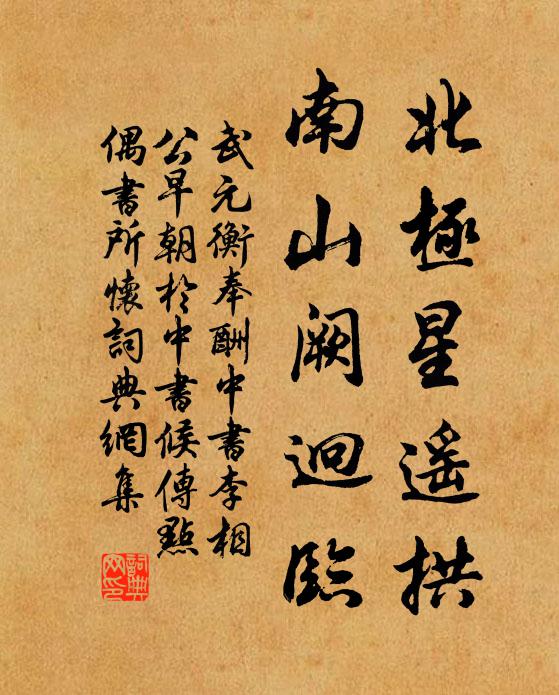 北極星遥拱
南山闕迥臨
武元衡奉酬中書李相
公早朝於中書候傳點
偶書所懷詞典網集
詞典網印